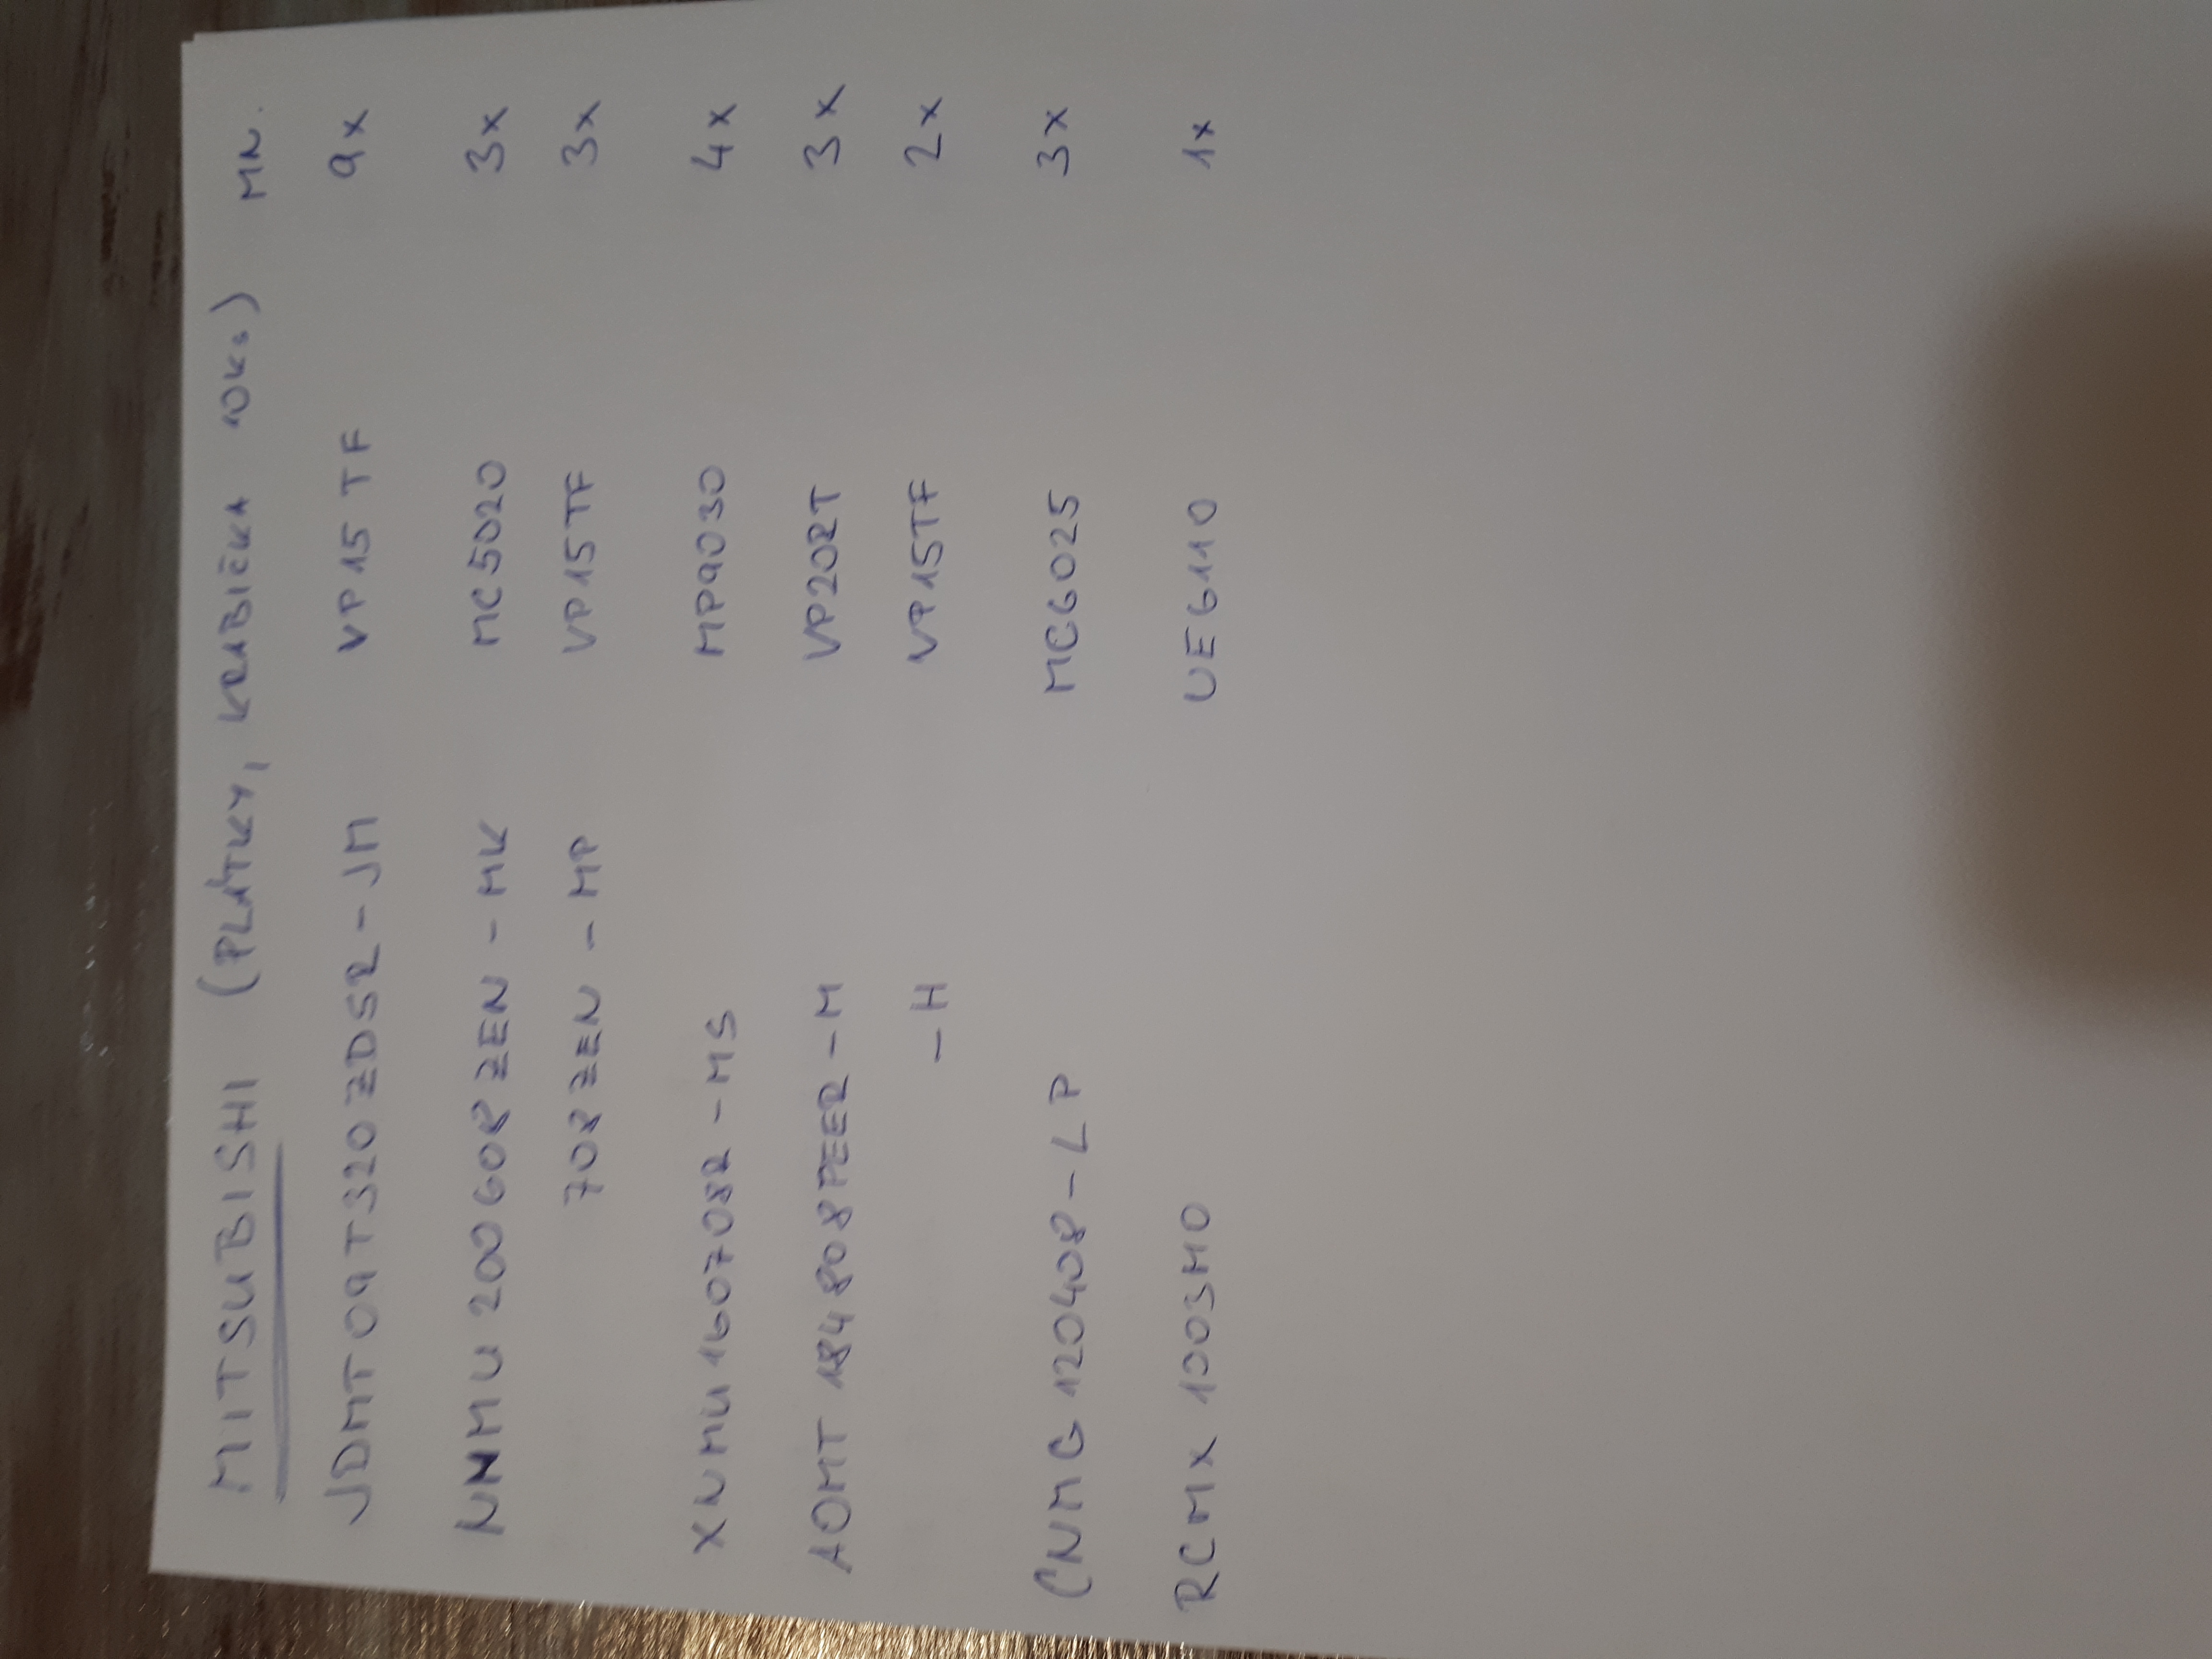 MITSUBISHI (PLÁTKY, KRABIČKA 10KS) MN.
JDMT09T320ZDSR-JM VP15TF 9x
NNMU 200608ZEN-MK MC5020 3x
708ZEN-MP VP15TF 3x
XNMU160708R-MS MP9030 4x
AOMT 184808PEER-M VP20RT 3x
-H VP15TF 2x
CNMG 120408-LP MC6025 3x
RCMX 1003M0 UE6110 1x